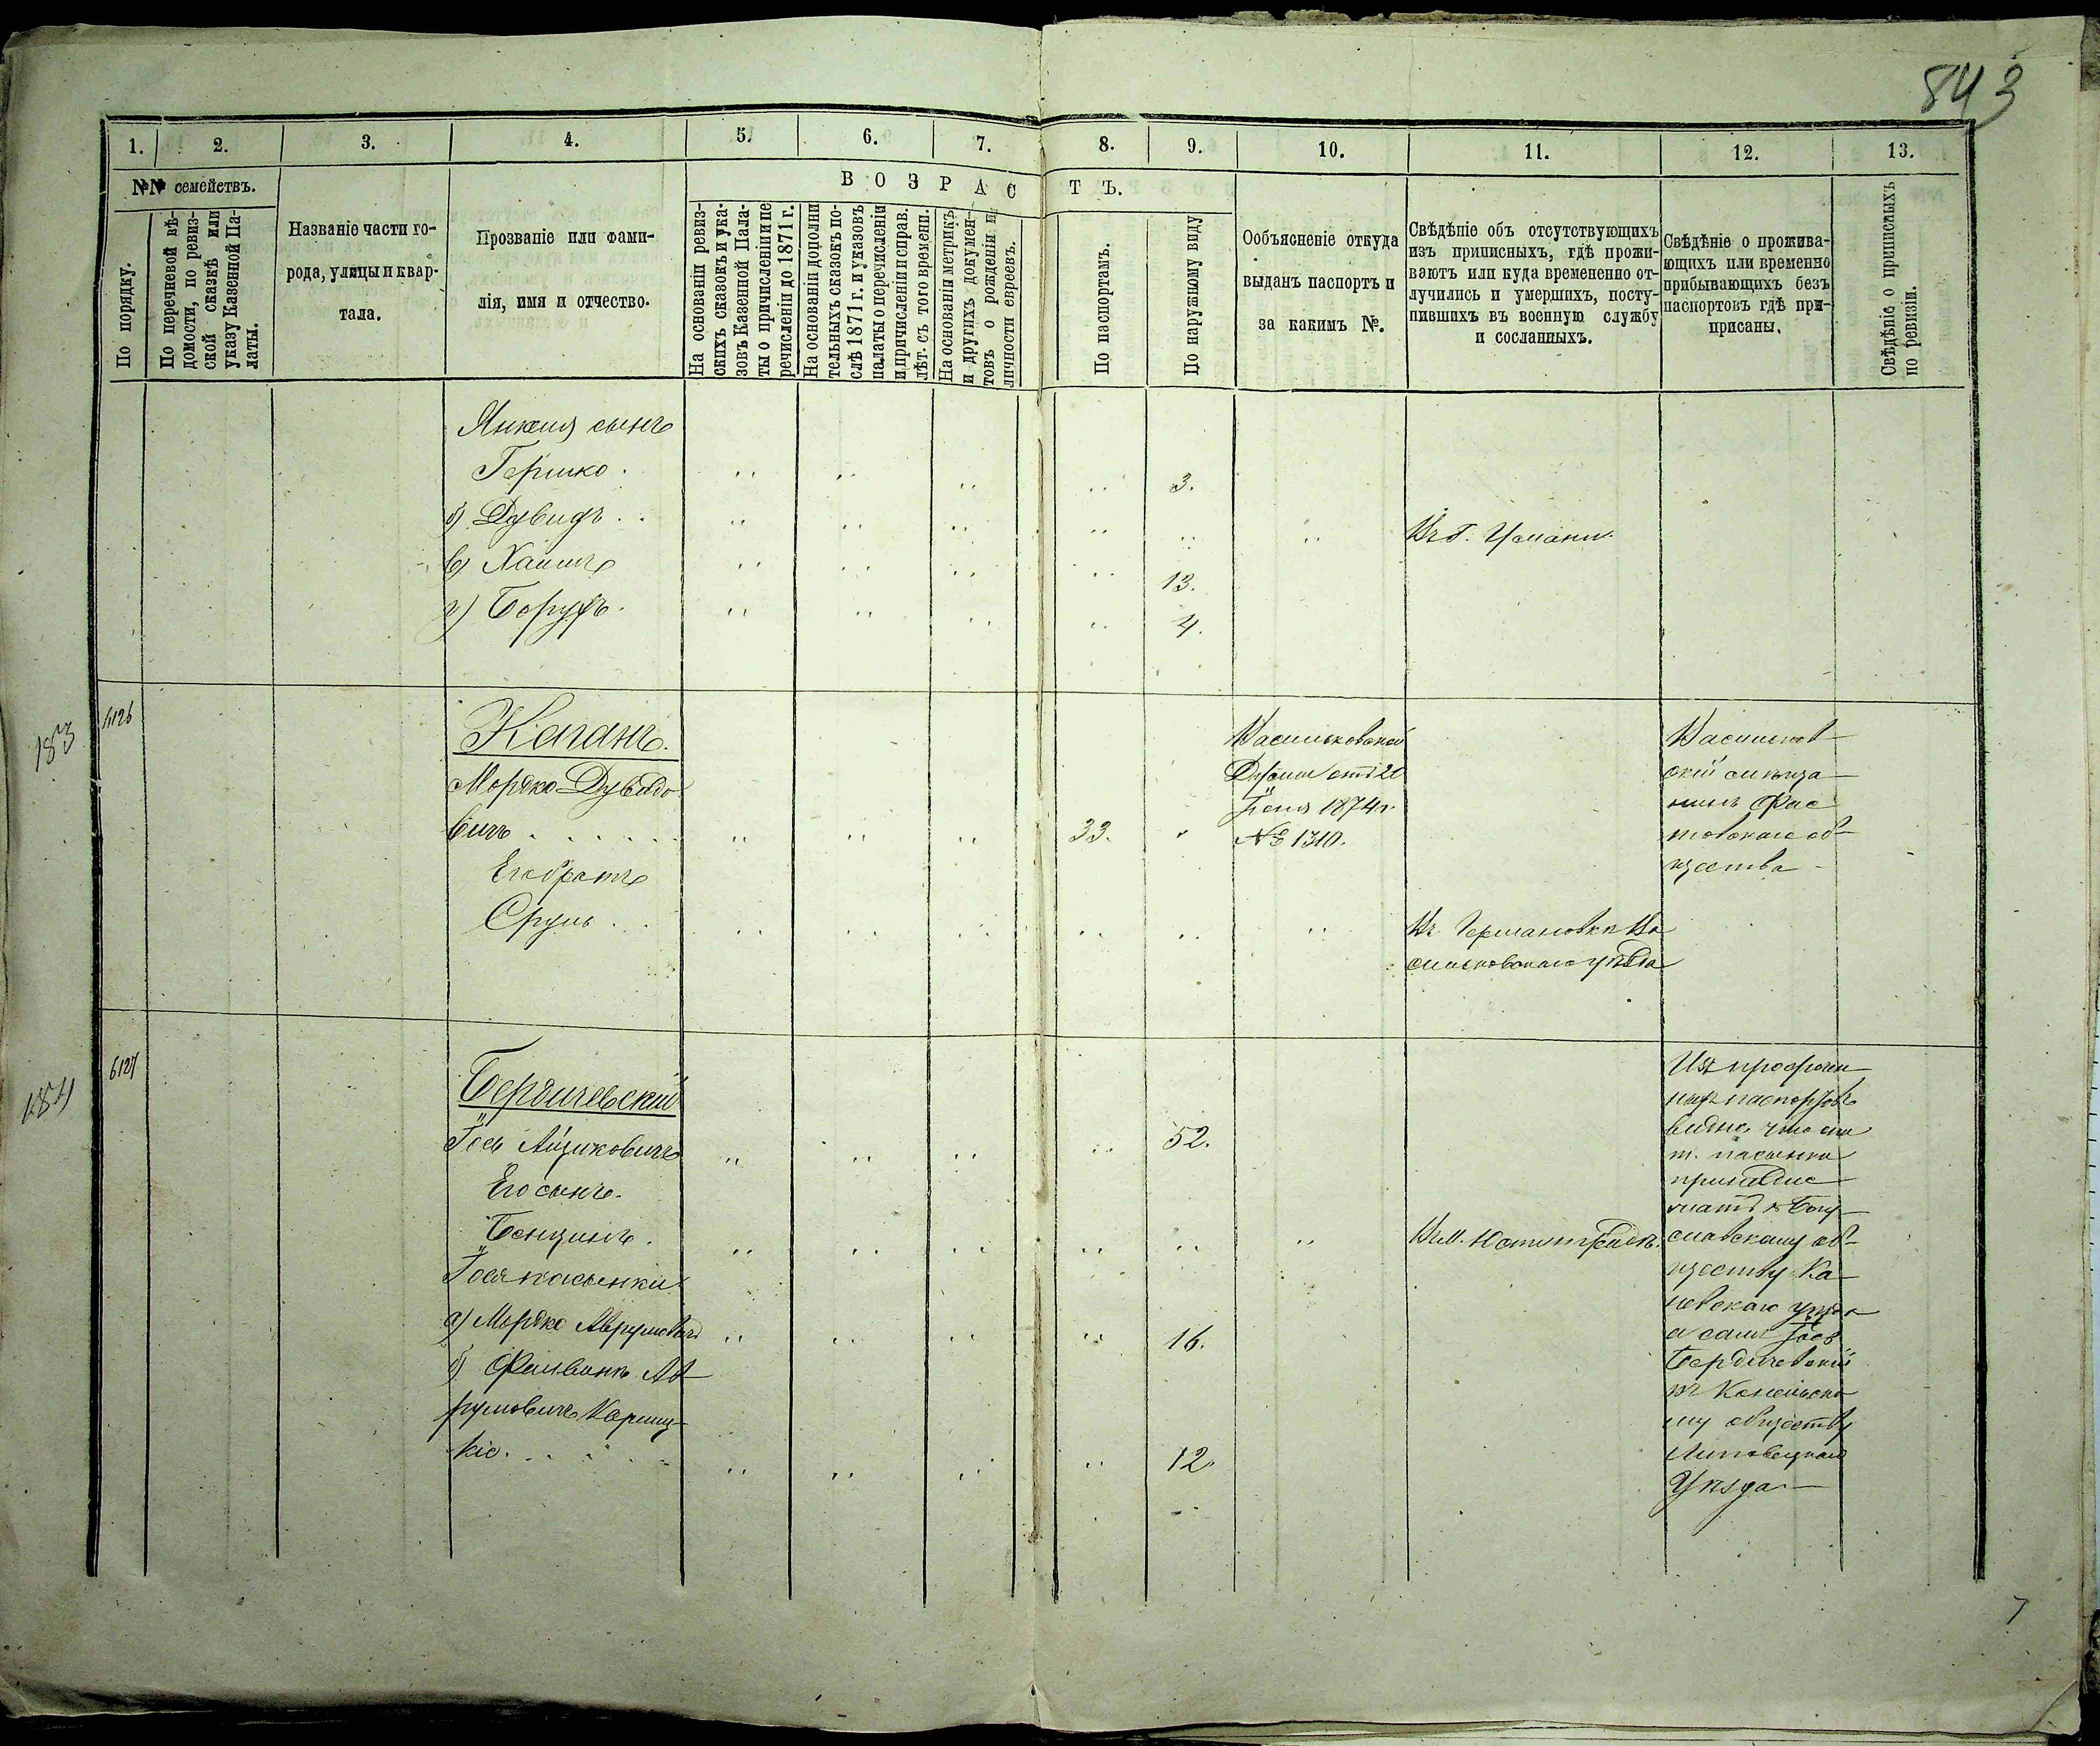 843
1. 2. 3. 4. 5. 6. 7. 8. 9. 10. 11. 12. 13.
№№ семействъ.
По порядку.
По перечневой вѣ-
домости, по ревиз-
ской сказкѣ или
указу Казенной Па-
латы.
Названіе части го-
рода, улицы и квар-
тала.
Прозваніе или фами-
лія, имя и отчество.
ВОЗРАСТЪ.
На основаніи ревиз-
скихъ сказокъ и ука-
зовъ Казенной Пала-
ты о причисленіи и пе
речисленіи до 1871 г.
На основаніи дополни
тельныхъ сказокъ по-
слѣ 1871 г. и указовъ
палаты о перечисленіи
и причисленіи и справ.
лѣт. съ того времени.
На основаніи метрикъ
и другихъ докумен-
товъ о рожденіи и
личности евреевъ.
По паспортамъ.
По наружному виду
Ообъясненіе откуда
выданъ паспортъ и
за какимъ №.
Свѣдѣніе объ отсутствующихъ
изъ приписныхъ, гдѣ прожи-
ваютъ или куда временено от-
лучились и умершихъ, посту-
пившихъ въ военную службу
и сосланныхъ.
Свѣдѣніе о прожива-
ющихъ или временно
прибывающихъ безъ
паспортовъ гдѣ при-
приписаны.
Свѣдѣніе о приписныхъ
по ревизіи.
Янкеля сынъ
Гершко. 3.
б) Дувидъ . . Въ г. Умани.
в) Хаимъ 13.
г) Борухъ. 4.
183
6126
Каганъ.
Мордко Дувидо-
вичъ . . . . . . 33.
Васильковской
Думы отъ 20
Іюня 1874 г.
№ 1310.
Васильков-
скій мѣща-
нинъ Фас
товскаго об-
щества
Его братъ
Сруль . . .
Въ Германовкѣ Ва
сильковскаго уѣзда
184
6127
Бердичевскій
Іось Айзиковичъ 52.
Его сынъ.
Бенционъ.
Іося пасынки
а) Мордко Аврумовичъ 16.
б) Файвишъ Ав-
румовичъ
. . . 12.
Изъ просрочен
ныхъ паспортовъ
видно, что эти
пасынки
принадле
жатъ къ Богу-
славскому об-
ществу Ка-
невскаго уѣзда
а самъ Іось
Бердичевскій
къ
му обществу
Липовецкаго
Уѣзда